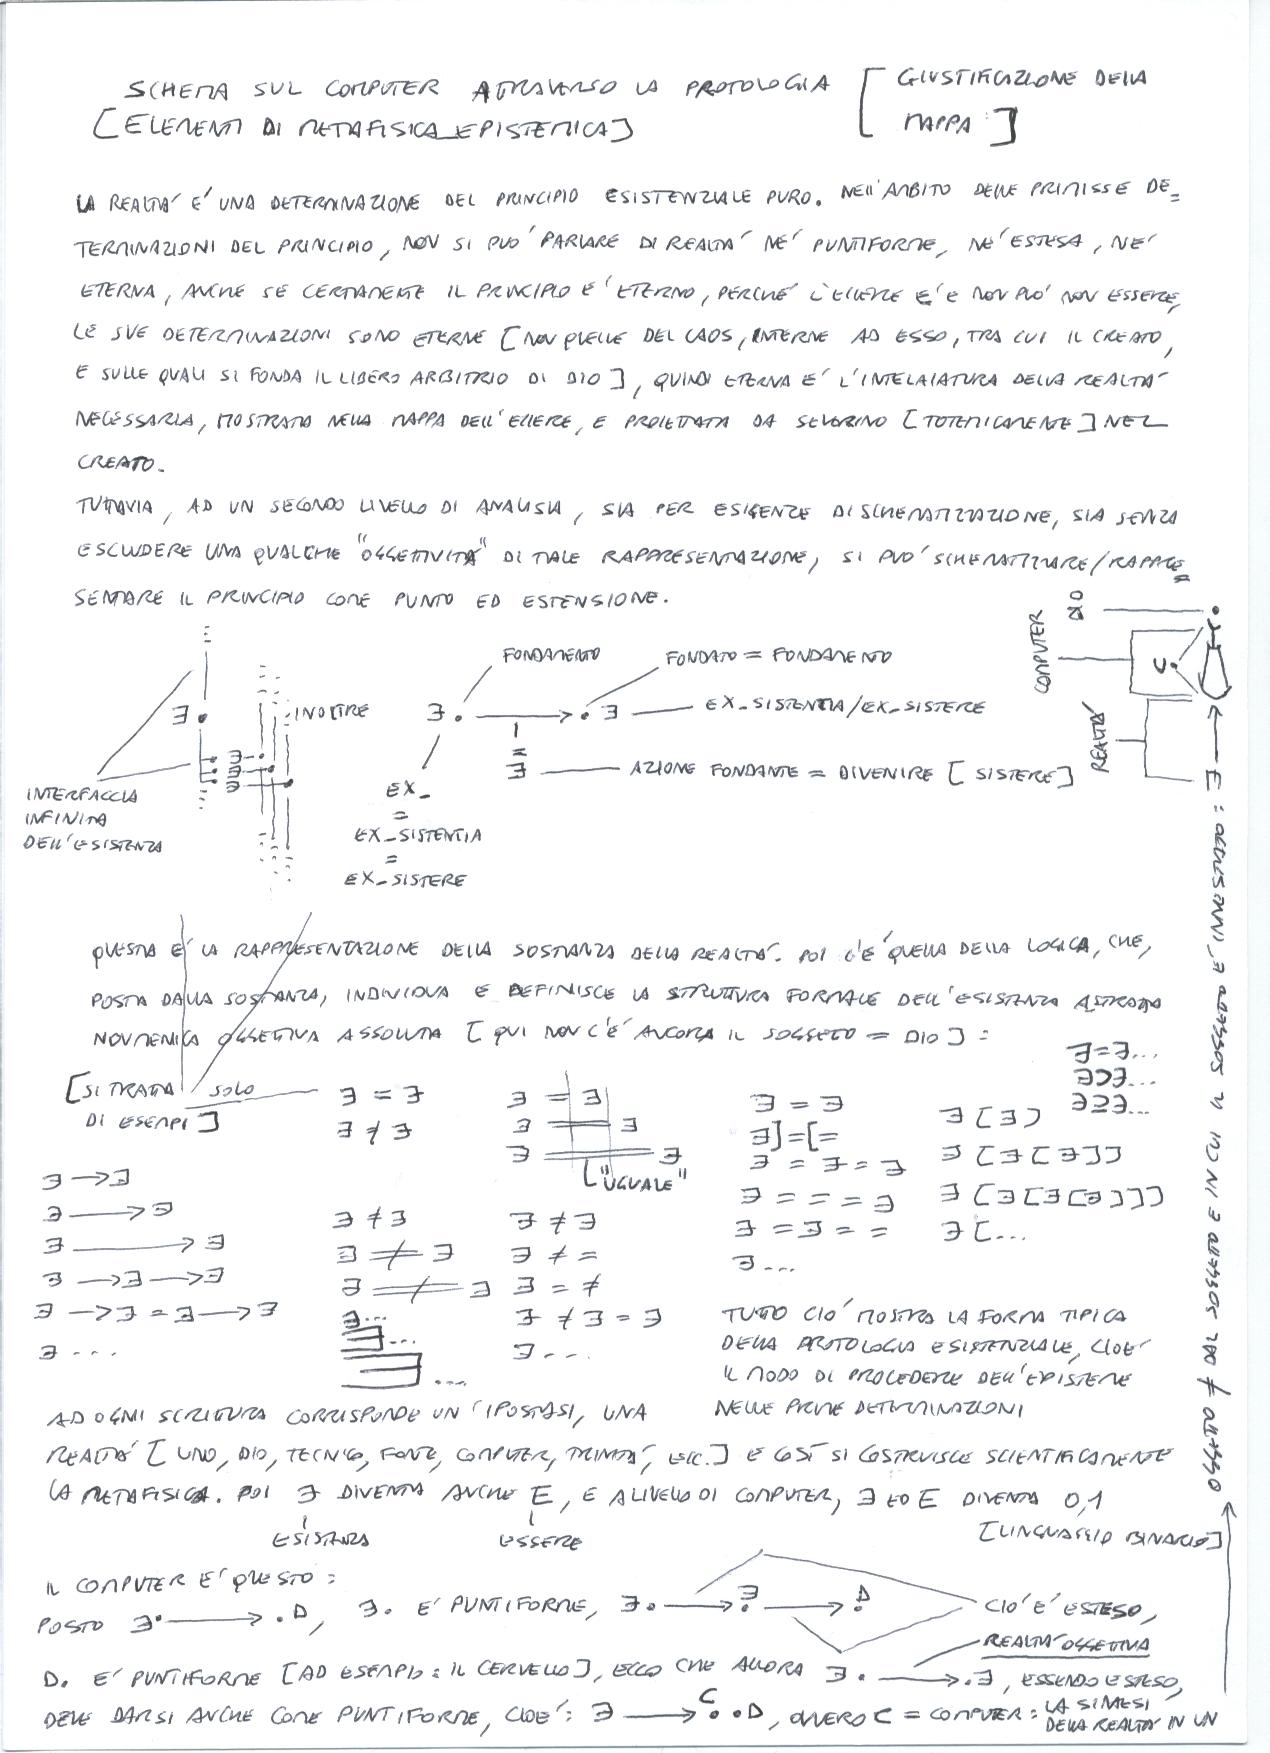 SCHEMA SUL COMPUTER ATTRAVERSO LA PROTOLOGIA [GIUSTIFICAZIONE DELLA
[ELEMENTI DI METAFISICA EPISTEMICA] MAPPA:]
LA REALTA' E' UNA DETERMINAZIONE DEL PRINCIPIO ESISTENZIALE PURO. NELL'AMBITO DELLE PRIMISSE DE=
TERMINAZIONI DEL PRINCIPIO, NON SI PUO' PARLARE DI REALTA' NE' PUNTIFORME, NE' ESTESA, NE'
ETERNA, ANCHE SE CERTAMENTE IL PRINCIPIO E' ETERNO, PERCHE' L'ESSERE E' E NON PUO' NON ESSERE,
LE SUE DETERMINAZIONI SONO ETERNE [NON QUELLE DEL CAOS, INTERNE AD ESSO, TRA CUI IL CREATO,
E SULLE QUALI SI FONDA IL LIBERO ARBITRIO DI DIO], QUINDI ETERNA E' L'INTELAIATURA DELLA REALTA'
NECESSARIA, MOSTRATA NELLA MAPPA DELL'ESSERE, E PROIETTATA DA SEVERINO [TOTEMICAMENTE] NEL
CREATO.
TUTTAVIA, AD UN SECONDO LIVELLO DI ANALISI, SIA PER ESIGENZE DI SCHEMATIZZAZIONE, SIA SENZA
ESCLUDERE UNA QUALCHE "OGGETTIVITA'" DI TALE RAPPRESENTAZIONE, SI PUO' SCHEMATIZZARE/RAPPRE=
SENTARE IL PRINCIPIO COME PUNTO ED ESTENSIONE.
DIO
COMPUTER
C.
REALTA'
E : OGGETTO ≠ DAL SOGGETTO E IN CUI IL SOGGETTO E' IMMESSO
FONDAMENTO
FONDATO = FONDAMENTO
∃. INOLTRE ∃. → .∃ EX_SISTENTIA/EX_SISTERE
∃
∃
∃
= ∃ AZIONE FONDANTE = DIVENIRE [SISTERE]
INTERFACCIA
INFINITA
DELL'ESISTENZA
EX_
=
EX_SISTENTIA
=
EX_SISTERE
QUESTA E' LA RAPPRESENTAZIONE DELLA SOSTANZA DELLA REALTA'. POI C'E' QUELLA DELLA LOGICA, CHE,
POSTA DALLA SOSTANZA, INDIVIDUA E DEFINISCE LA STRUTTURA FORMALE DELL'ESISTENZA ASTRATTA
NOUMENICA OGGETTIVA ASSOLUTA [QUI NON C'E' ANCORA IL SOGGETTO = DIO] :
[SI TRATTA SOLO
DI ESEMPI]
∃ → ∃
∃ → ∃
∃ → ∃
∃ → ∃ → ∃
∃ → ∃ = ∃ → ∃
∃ ...
∃ = ∃
∃ ≠ ∃
∃ ≠ ∃
∃ ≠ ∃
∃ ≠ ∃
∃...
∃...
∃...
∃ = ∃
∃ = ∃
∃ = ∃
"UGUALE"
∃ ≠ ∃
∃ ≠ =
∃ = ≠
∃ ≠ ∃ = ∃
∃ ...
∃ = ∃
∃] = [=
∃ = ∃ = ∃
∃ = = = ∃
∃ = ∃ = =
∃ ...
∃=∃...
∃⊃∃...
∃⊇∃...
∃ [∃]
∃ [∃[∃]]
∃ [∃[∃[∃]]]
∃ [...
TUTTO CIO' MOSTRA LA FORMA TIPICA
DELLA PROTOLOGIA ESISTENZIALE, CIOE'
IL MODO DI PROCEDERE DELL'EPISTEME
NELLE PRIME DETERMINAZIONI
AD OGNI SCRITTURA CORRISPONDE UN'IPOSTASI, UNA
REALTA' [UNO, DIO, TECNICO, FONTE, COMPUTER, TRINITA', ESC.] E COSI' SI COSTRUISCE SCIENTIFICAMENTE
LA METAFISICA. POI ∃ DIVENTA ANCHE E, E A LIVELLO DI COMPUTER, ∃ ED E DIVENTA 0,1
ESISTENZA ESSERE [LINGUAGGIO BINARIO]
IL COMPUTER E' QUESTO :
POSTO ∃. → .D, ∃. E' PUNTIFORME, ∃. → ∃. → .D CIO' E' ESTESO,
REALTA' OGGETTIVA
D. E' PUNTIFORME [AD ESEMPIO : IL CERVELLO], ECCO CHE ALLORA ∃. → .∃, ESSENDO ESTESO,
DEVE DARSI ANCHE COME PUNTIFORME, CIOE' : ∃ → C. .D, OVVERO C = COMPUTER : LA SINTESI
DELLA REALTA' IN UN